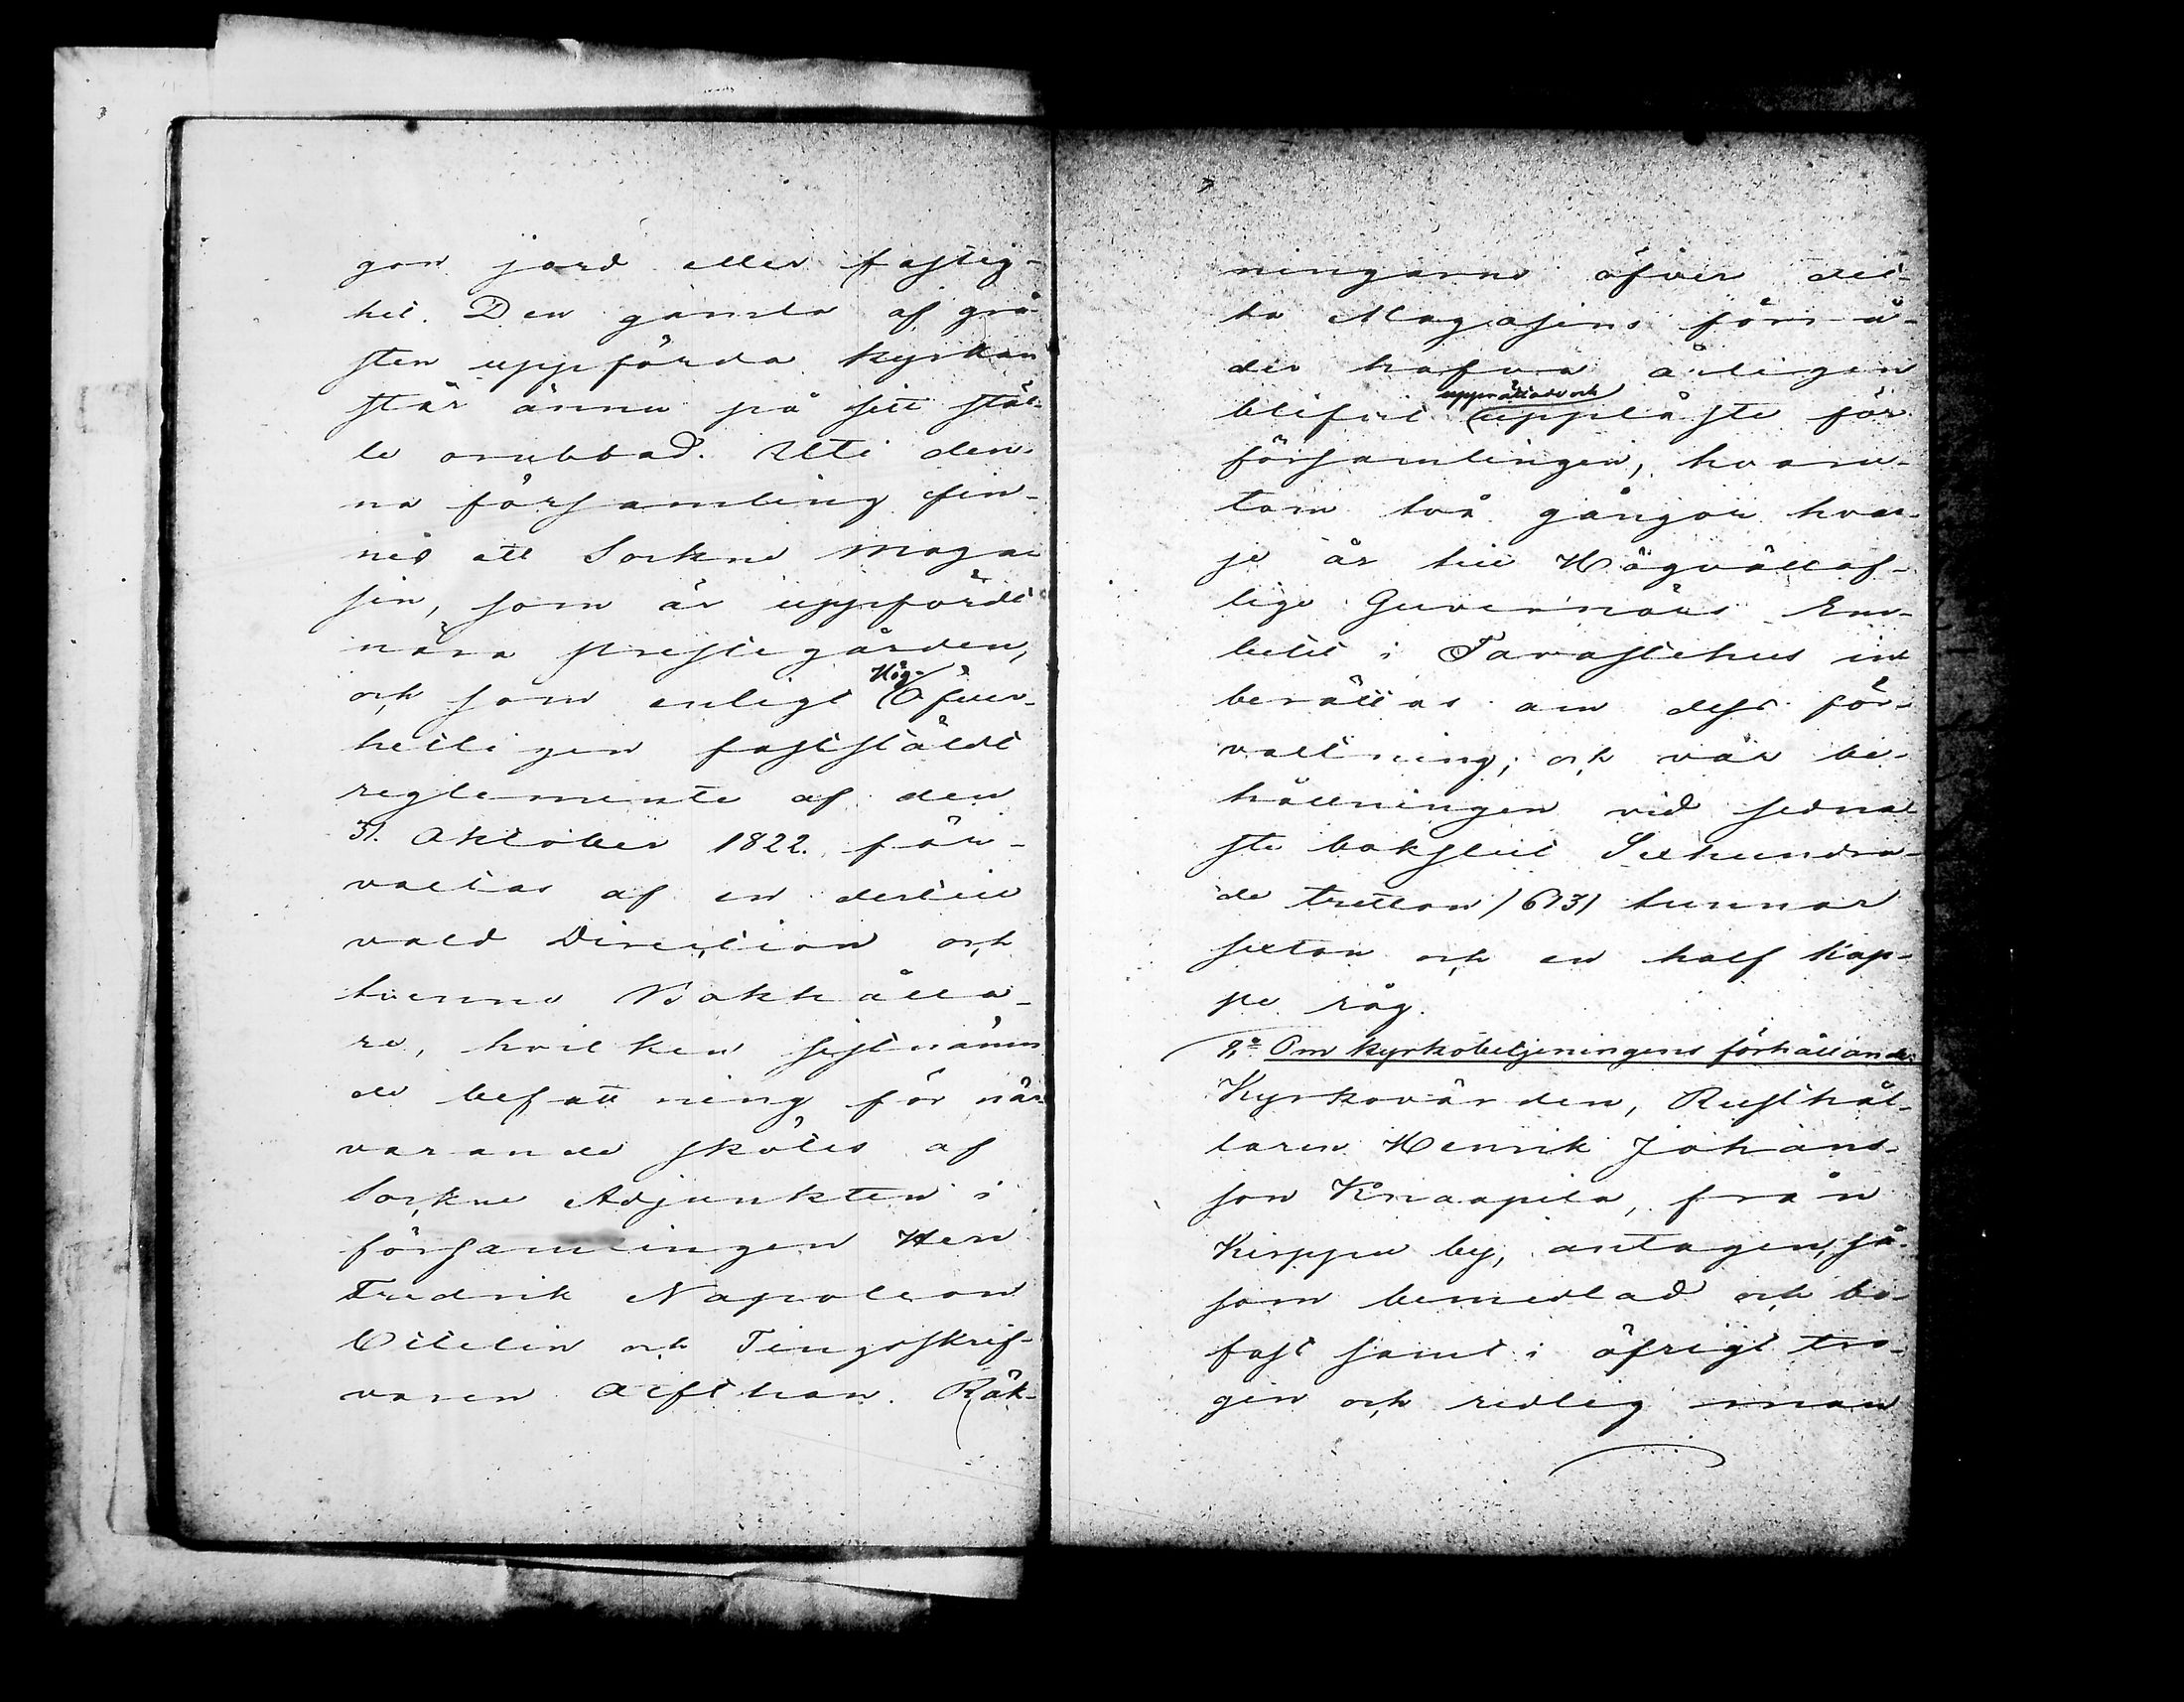 gon jord eller fastig-
het. Den gamla af grå-
sten uppförda kyrkan
står ännu på sitt stäl-
le orubbad. Uti den-
na församling fin-
nes ett Sockne maga-
sin, som är uppfördt
nära prestegården,
och som enligt Hög-
Öfver-
hetligen fastställdt
reglemente af den
31. Oktober 1822. för-
valtas af en dertill
vald Direction och
tvenne Bokhålla-
re, hvilken sistnämn-
de befattning för när-
varande skötes af
Sockne Adjunkten i
församlingen Herr
Fredrik Napoleon
Citelin och Tingsskrif-
varen Alfthan. Räk-
ningarne öfver det-
ta Magasins förrå-
der hafva årligen
upprättade och
blifvit uppläste för
församlingen, hvaru-
tom två gångor hvar-
je år till Högvällof-
lige Guvernörs Em-
betet i Tavastehus in-
berättas om dess för-
valtning; och var be-
hållningen vid sedna-
ste bokslut Sexhundra-
de tretton /613/ tunnor
sexton och en half kap-
pe råg.
8,o Om kyrkobetjeningens förhållande.
Kyrkovärden, Rusthål-
laren Henrik Johans-
son Knaapila, från
Kirppu by, antagen, så-
som bemedlad och bo-
fast samt i öfrigt tro-
gen och redlig man